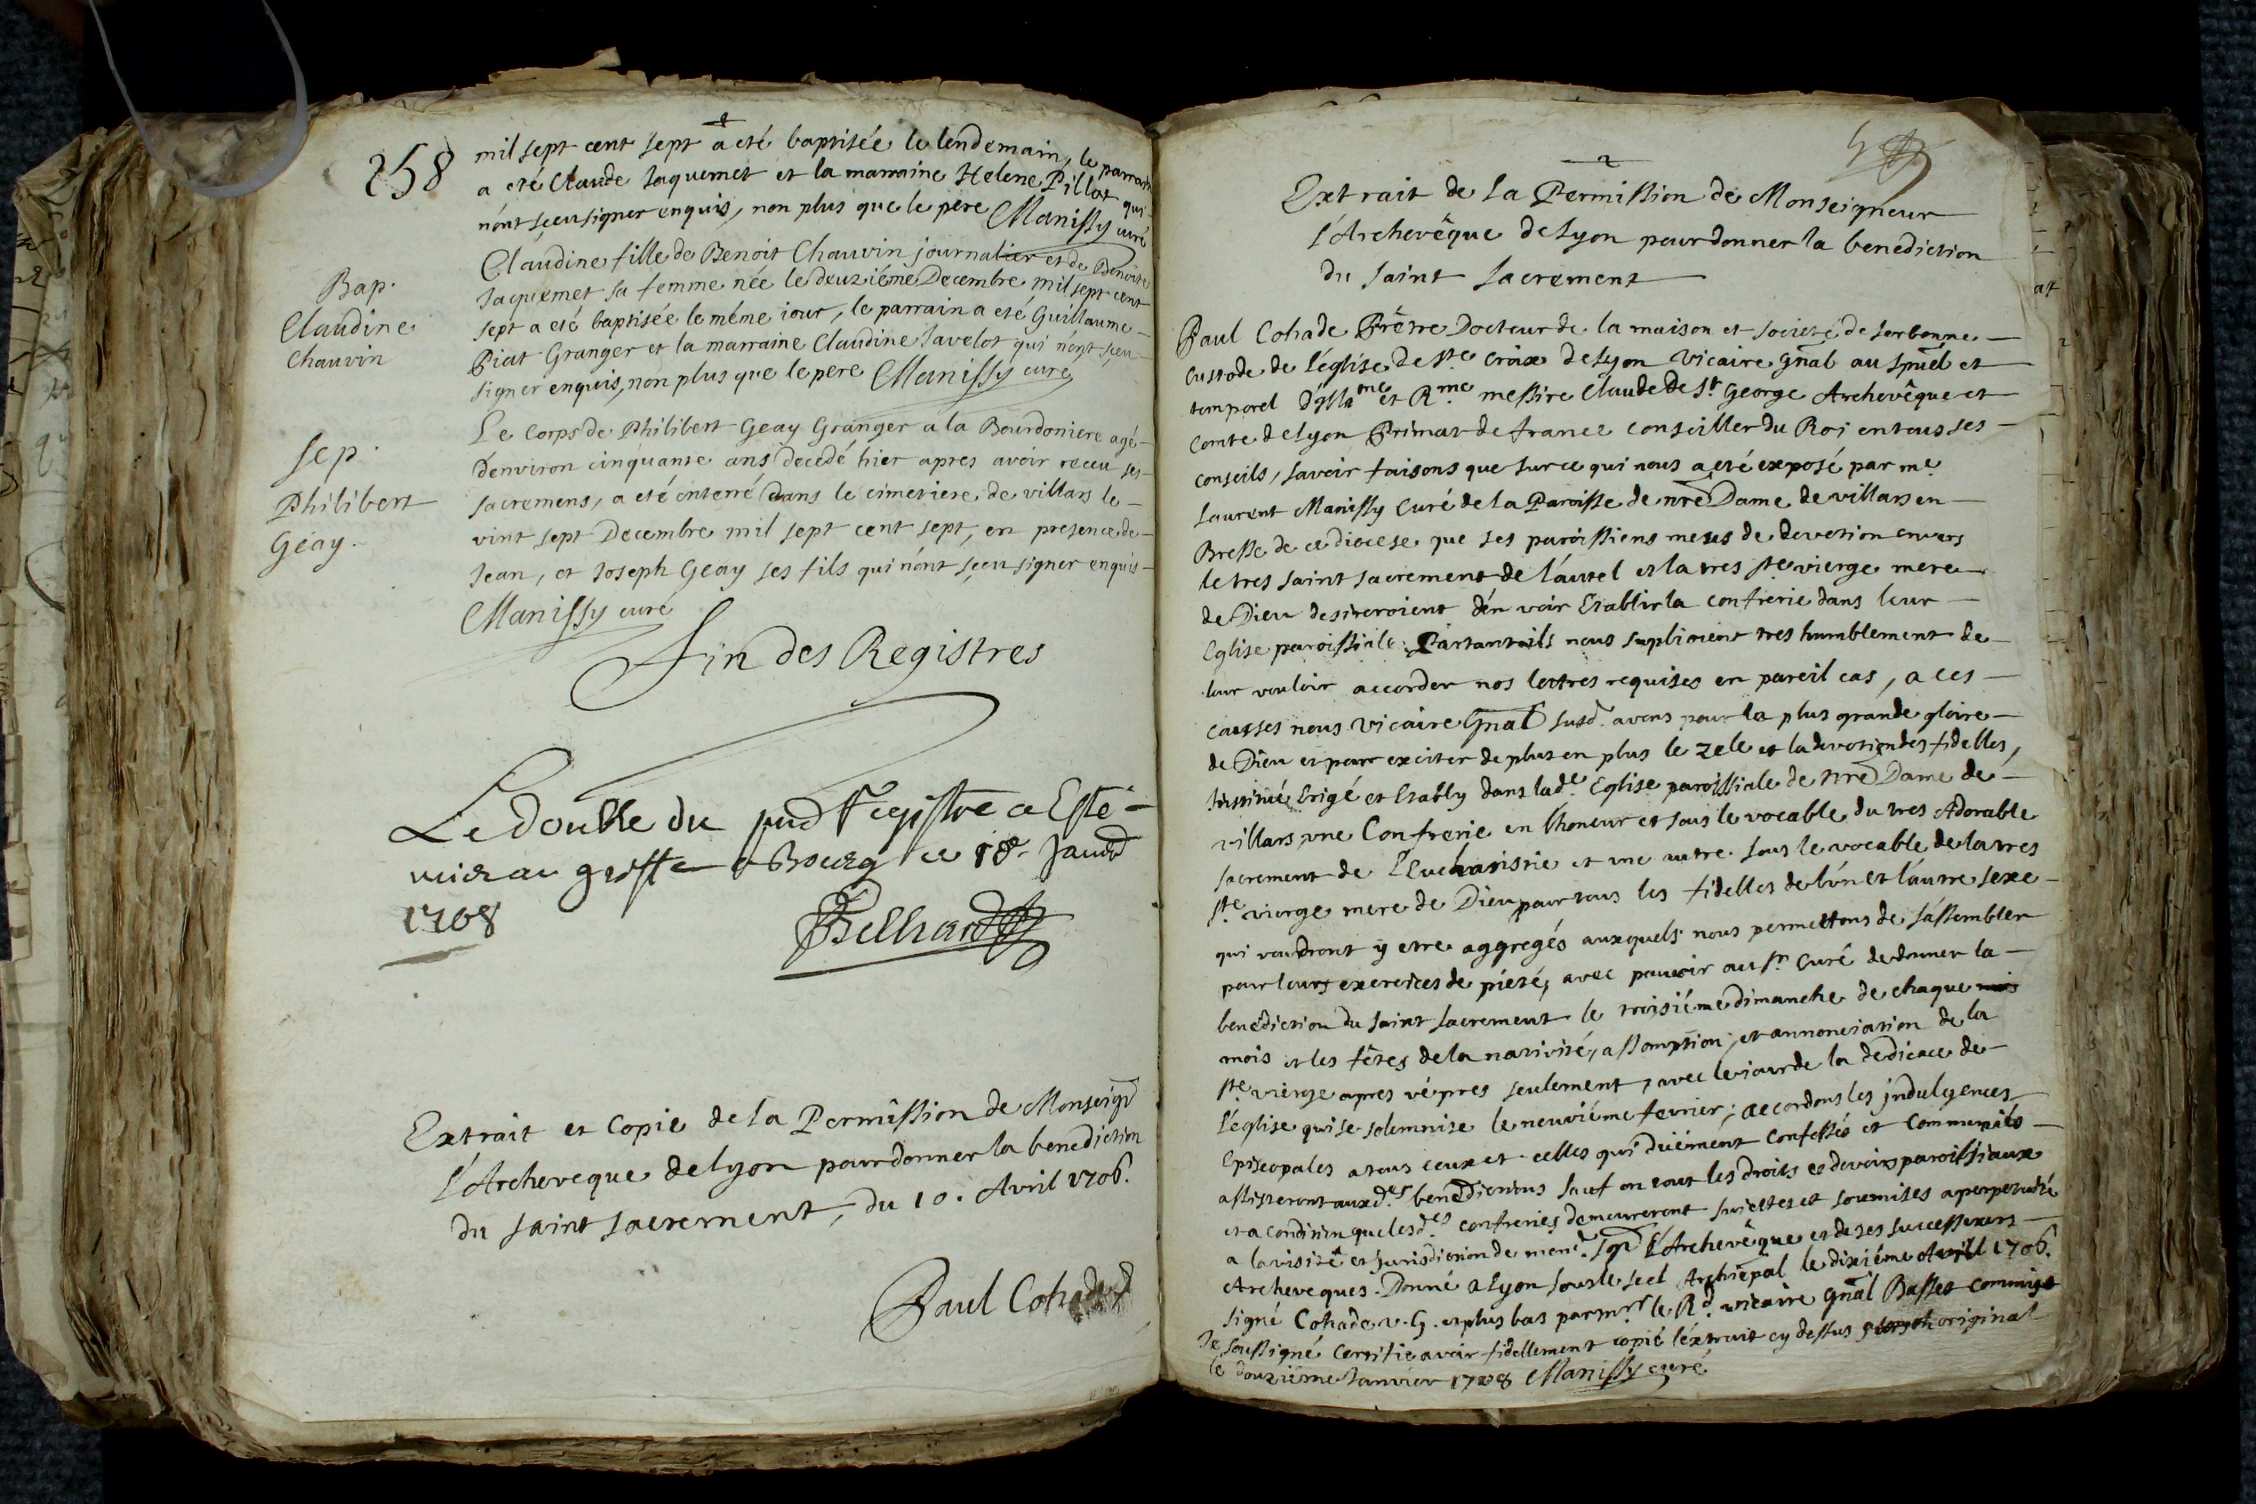 258
mil sept cent sept a eté baptisée le lendemain, le parrain
a eté Claude Jaquemet et la marraine Helene Pillat qui
n'ont sçeu signer enquis, non plus que le pere Manissy curé
Bap.
Claudine
Chauvin
Claudine fille de Benoit Chauvin journalier et de Benoite
Jaquemet sa femme née le deuziéme Decembre mil sept cent
sept a eté baptisée le méme iour, le parrain a eté Guillaume
Piat Granger et la marraine Claudine Javelot qui n'ont sçeu
signer enquis, non plus que le pere Manissy curé
Sep.
Philibert
Geay.
Le Corps de Philibert Geay Granger a la Bourdoniere agé
d'environ cinquante ans decedé hier apres avoir receu ses
sacremens, a eté enterré dans le cimetiere de villars le
vint sept Decembre mil sept cent sept, en presence de
Jean, et Joseph Geay ses fils qui n'ont sçeu signer enquis
Manissy curé
Fin des Registres
Le double du pnt Registre a Esté
mis au greffe a Bourg ce 18e Janvr
1708
Extrait et Copie de la Permission de Monseigr
l'Archeveque de lyon pour donner la benediction
du saint sacrement, du 10. Avril 1706.
Paul Cohade
2
Extrait de la Permission de Monseigneur
l'Archevêque de lyon pour donner la benediction
du saint sacrement
Paul Cohade Prêtre Docteur de la maison et societé de sorbonne
custode de l'église de ste Croix de lyon vicaire gnal au spuel et
temporel d'Illme et Rme messire Claude de St George Archevêque et
comte de lyon Primat de france conseiller du Roi en tous ses
conseils, savoir faisons que sur ce qui nous a eté exposé par me
Laurent Manissy Curé de la Paroisse de nre Dame de villars en
Bresse de ce diocese que ses paroissiens meus de devotion envers
le tres saint sacrement de l'autel et la tres ste vierge mere
de Dieu desireroient d'en voir Etablir la confrerie dans leur
Eglise paroissiale. Partant ils nous suplioient tres humblement de
leur vouloir accorder nos lettres requises en pareil cas, a ces
causes nous vicaire Gnal susd. avons pour la plus grande gloire
de Dieu et pour exciter de plus en plus le zele et la devotion des fidelles,
Institué Erigé et Etably dans lade Eglise paroissiale de nre Dame de
villars, une Confrerie en l'honeur et sous le vocable du tres Adorable
sacrement de l'Eucharistie et une autre sous le vocable de la tres
ste vierge mere de Dieu pour tous les fidelles de l'un et l'autre sexe
qui voudront y etre aggregés auxquels nous permettons de s'assembler
pour leurs exercices de piété, avec pouvoir au sr Curé de donner la
benediction du saint sacrement le troisiéme dimanche de chaque mois
mois et les fêtes de la nativité, assomption, et annonciation de la
ste vierge apres vépres seulement, avec le iour de la dedicace de
l'église qui se solemnise le neuviéme fevrier; accordons les indulgences
Episcopales a tous ceux et celles qui duëment confessés et Communiés
assisteront auxdes benedictions sauf en tout les droits et devoirs paroissiaux
et a condition que lesdes confreries demeureront sujettes et soumises a perpetuité
a la visite et Jurisdiction de mond. sgr l'Archevêque et de ses successeurs
Archeveques. Donné a Lyon sous le scel Archiepal le dixiéme Avril 1706.
signé Cohade v. G. et plus bas par mr le Rd vicaire gnal Basset commis
Je soussigné certifie avoir fidellement copié l'extrait cy dessus original
le douziéme Janvier 1708 Manissy curé